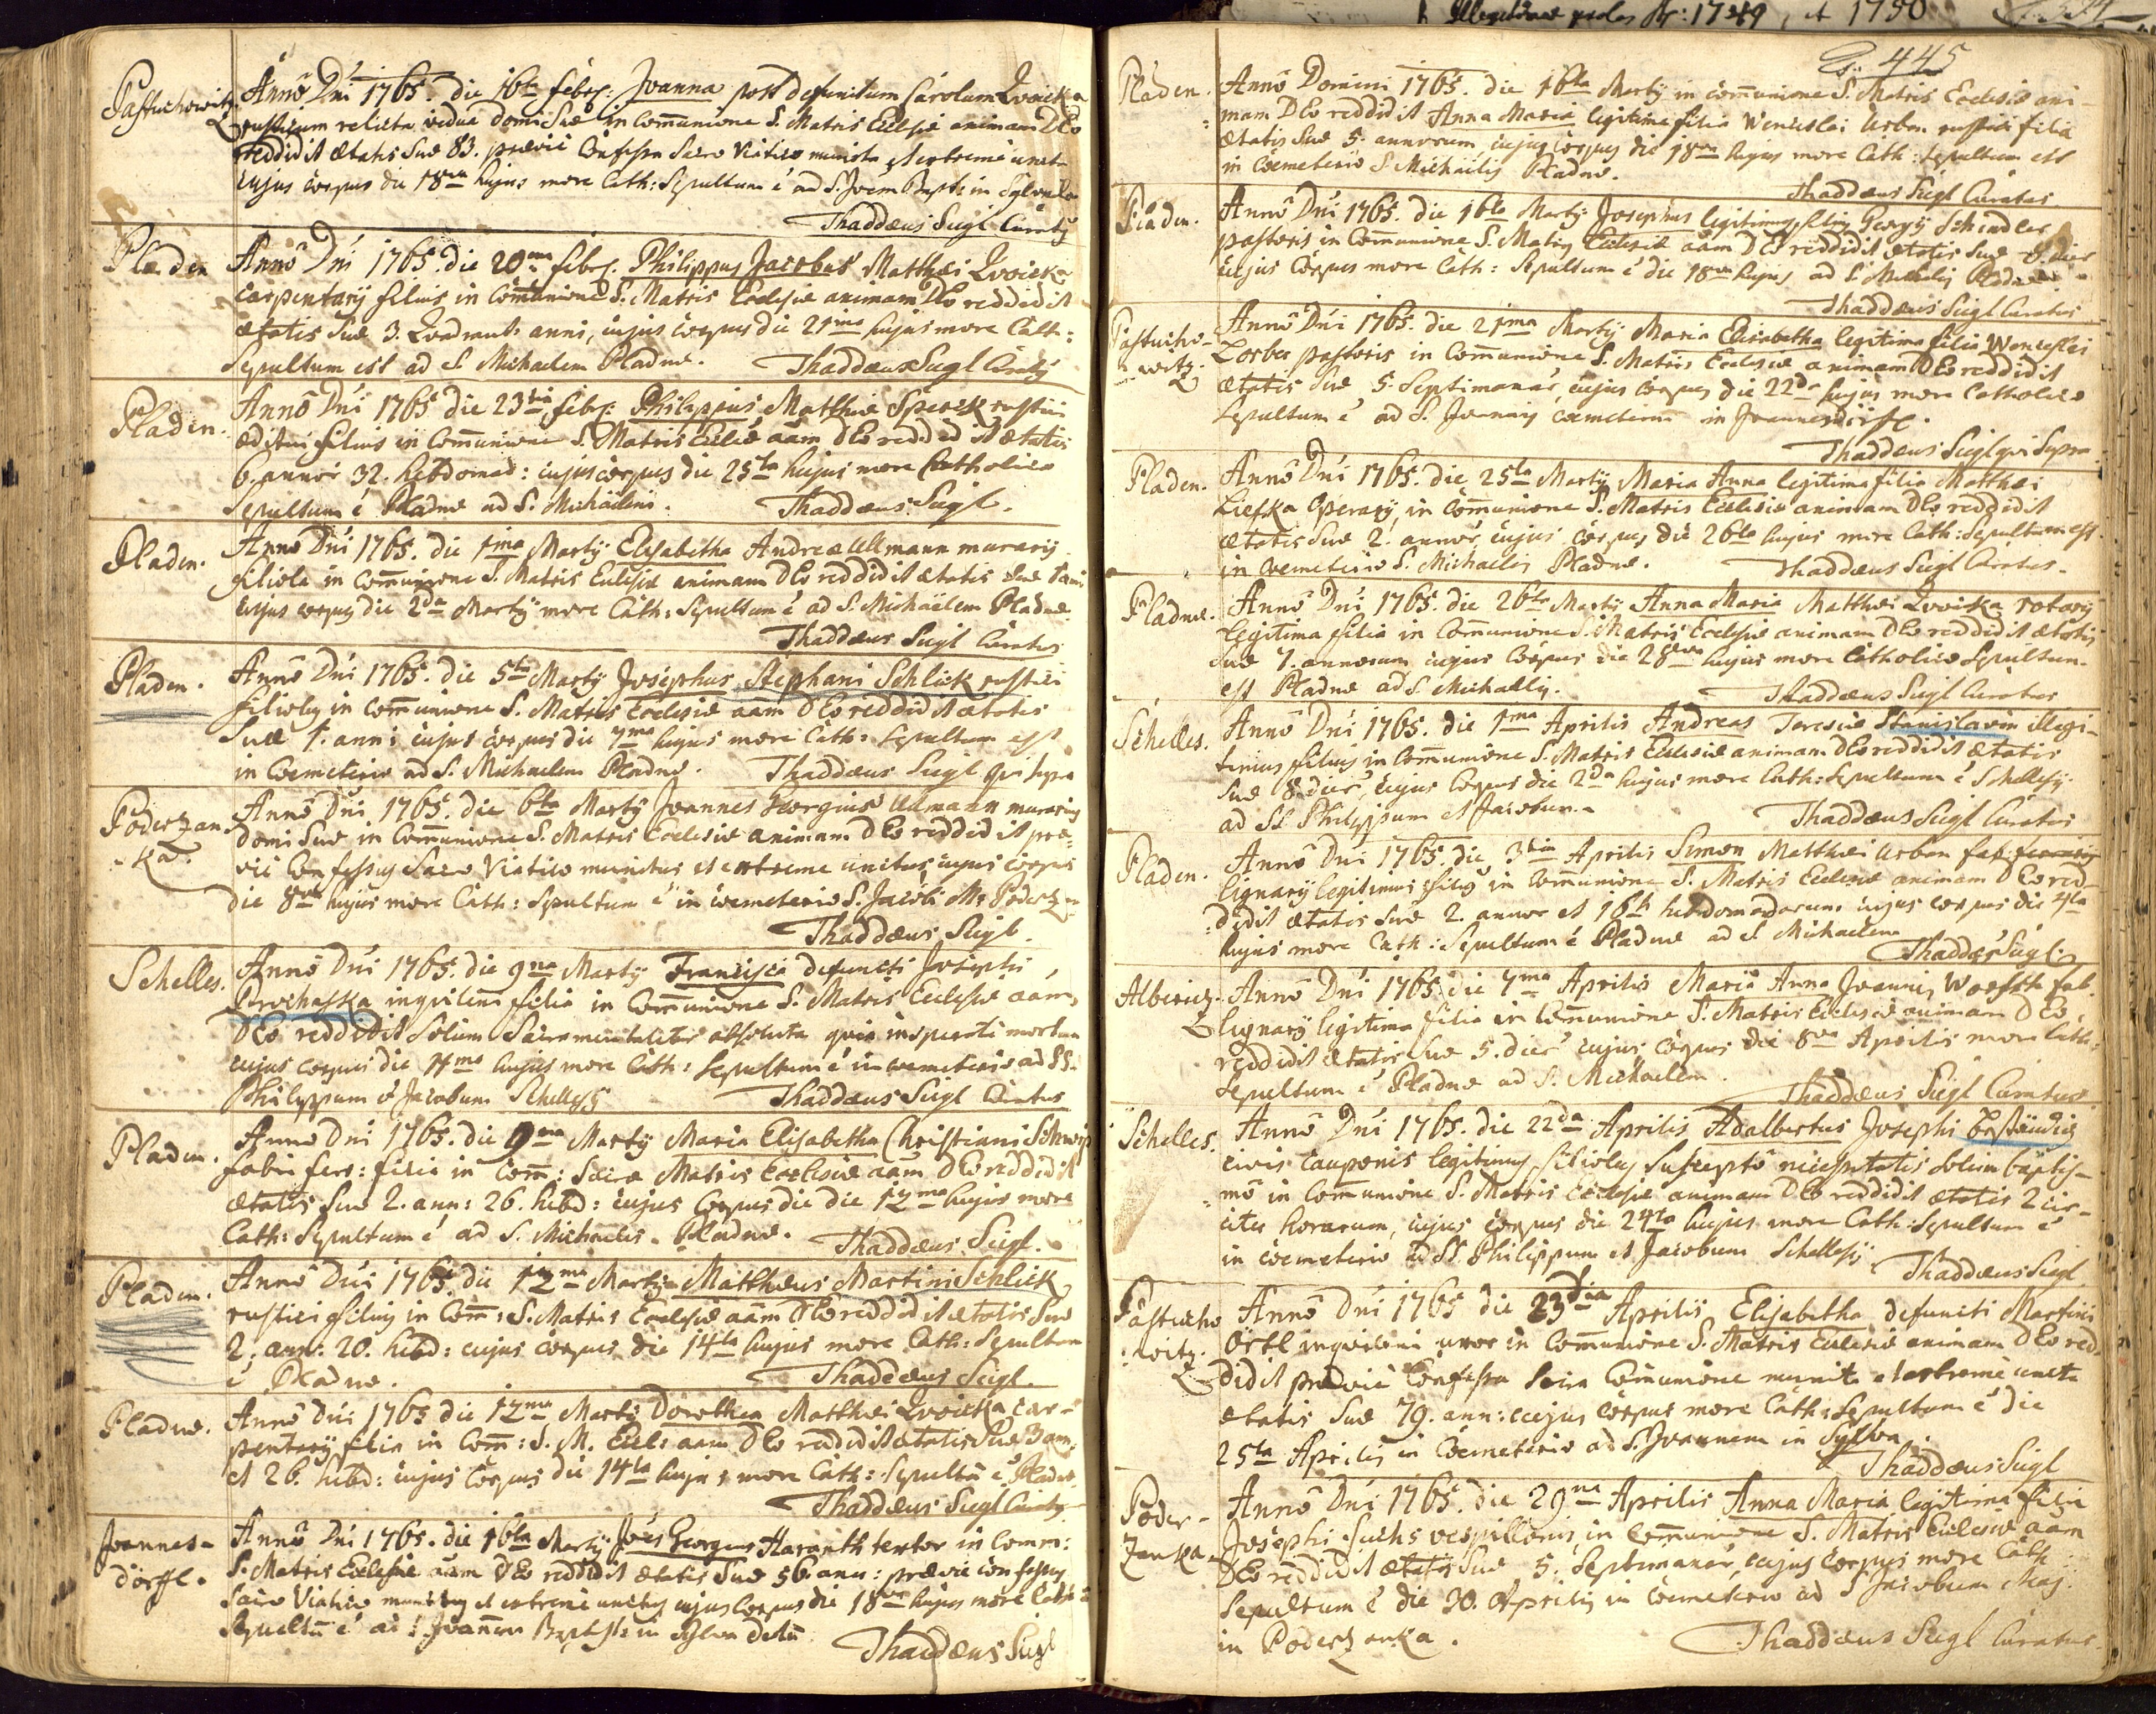 Pastuchowitz. Anno Dni 1765. die 16ta febr: Joanna post defunctum Carolum Zwicka
rusticum relicta vidua domi Suae in Communione S. Matris Ecclesiae animam DEo
reddidit aetatis Suae 83. praevie Confessa Sacro Viatico munita et extreme uncta
cujus corpus die 18va hujus more Cath: Sepultum e ad S. Joem Bapt: in Sylva
Thaddaeus Siegl Curatus
Pladen Anno Dni 1765. die 20ma febr. Philippus Jacobus Matthaei Zwicka
carpentarij filius in Communione S. Matris Ecclesiae animam DEo reddidit
aetatis Suae 3. Quadrant: anni, cujus corpus die 21ma hujus more Cath:
Sepultum est ad S. Michaelem Pladnae. Thaddaeus Siegl Curatus
Pladen. Anno Dni 1765 die 23tia febr: Philippus Matthiae Sperck rustici
aeditui filius in Communione S. Matris Ecclesiae aam DEo reddidit aetatis
6. annor 32. hebdomad: cujus corpus die 25ta hujus more Catholico
Sepultum e Pladnae ad S. Michaelem. Thaddaeus Siegl.
Pladen. Anno Dni 1765. die 1ma Martij Elisabetha Andreae Ullmann murarij
filiola in Communione S. Matris Ecclesiae animam DEo reddidit aetatis Suae
cujus corpus die 2da Martij more Cath: Sepultum e ad S. Michaelem Pladnae.
Thaddaeus Siegl Curatus
Pladen. Anno Dni 1765. die 5ta Martij Josephus Stephani Schlick rustici
filiolus in Communione S. Matris Ecclesiae aam DEo reddidit aetatis
Suae 1. anni cujus corpus die 7ma hujus more Cath: Sepultum est
in Coemeterio ad S. Michaelem Pladnae. Thaddaeus Siegl qui supra
Poderzan-
ka. Anno Dni 1765. die 6ta Martij Joannes Georgius Ullmann murarius
domi Suae in Communione S. Matris Ecclesiae animam DEo reddidit prae-
vie Confessus Sacro Viatico munitus et extreme unctus, cujus corpus
die 8va hujus more Cath: Sepultum e in coemeterio S. Jacobi M: Poderz
Thaddaeus Siegl.
Schelles. Anno Dni 1765. die 9na Martij Francisca defuncti Josephi
Prochaska inquilini filia in Communione S. Matris Ecclesiae aam
DEo reddidit Solum Sacramentaliter absoluta quia insperate mortua
cujus corpus die 11ma hujus more Cath: Sepultum e in coemeterio ad SS.
Philippum et Jacobum Schellesij Thaddaeus Siegl Curatus
Pladen. Anno Dni 1765. die 9na Martij Maria Elisabetha Christiani
fabri fer: filia in Com: Sacrae Matris Ecclesiae aam DEo reddidit
aetatis Suae 2. ann: 26. hebd: cujus Corpus die die 12ma hujus more
Cath: Sepultum e ad S. Michaelis Pladnae. Thaddaeus Siegl.
Pladen. Anno Dni 1765. die 12ma Martij Matthaeus Martini Schlick
rustici filius in Com: S. Matris Ecclesiae aam DEo reddidit aetatis Suae
2. ann: 20. hebd: cujus corpus die 14ta hujus more Cath: Sepultum
e Pladnae. Thaddaeus Siegl.
Pladnae. Anno Dni 1765 die 12ma Martij Dorothea Matthaei Zwicka car-
pentarij filia in Com: S. M. Eccl: aam DEo reddidit aetatis Suae 3 ann.
et 26. hebd: cujus Corpus die 14ta hujus more Cath: Sepultu e Pladnae
Thaddaeus Siegl Curatus
Joannes-
dörffl. Anno Dni 1765. die 16ta Martij Joes Georgius Haranth textor in Comm:
S. Matris Ecclesiae aam DEo reddidit aetatis Suae 56 ann: praevie confessus
Sacro Viatico munitus et extreme unctus cujus corpus die 18va hujus more Cath:
Sepultu e ad S. Joannem Baptist: in sylva
Thaddaeus Siegl
Illegitimae proles Ao: 1749, et 1750
445
Pladen. Anno Domini 1765. die 16ta Martij in communione S. Matris Ecclesiae ani-
mam DEo reddidit Anna Maria legitima filia Wenceslai Urban rustici filia
aetatis Suae 5. annorum cujus corpus die 18va hujus more Cath: Sepultum est
in coemeterio S. Michaelis Pladnae.
Thaddaeus Siegl Curatus
Pladen. Anno Dni 1765. die 16ta Martij Josephus legitimus filius Georgij Schindler
pastoris in Communione S. Matris Ecclesiae aam DEo reddidit aetatis Suae 8 dier
cujus Corpus more Cath: Sepultum e die 18va hujus ad S. Michaelis Pladnae
Thaddaeus Siegl Curatus
Pastucho-
witz. Anno Dni 1765. die 21ma Martij Maria Elisabetha legitima filia Wenceslai
Lorber pastoris in Communione S. Matris Ecclesiae animam DEo reddidit
aetatis Suae 5. Septimanar, cujus corpus die 22da hujus more Catholico
Sepultum e ad S. Joannis coemeterium in Joannesdörffl.
Thaddaeus Siegl qui Supra
Pladen. Anno Dni 1765. die 25ta Martij Maria Anna legitima filia Matthaei
Liefka operarij, in communione S. Matris Ecclesiae animam DEo reddidit
aetatis Suae 2. annor, cujus corpus die 26ta hujus more Cath: Sepultum est
in coemeterio S. Michaelis Pladnae. Thaddaeus Siegl Curatus.
Pladnae. Anno Dni 1765. die 26ta Martij Anna Maria Matthaei Zwicka rotarij
legitima filia in Communione S. Matris Ecclesiae animam DEo reddidit aetatis
Suae 7. annorum cujus Corpus die 28va hujus more Catholico Sepultum
est Pladnae ad S. Michaelis. Thaddaeus Siegl Curatus
Schelles. Anno Dni 1765. die 1ma Aprilis Andreas Teresiae Stanislavin illegi-
timus filius in Communione S. Matris Ecclesiae animam DEo reddidit aetatis
Suae 8. dier, cujus Corpus die 2da hujus more Cath: Sepultum e Schellesij
ad SS Philippum et Jacobum. Thaddaeus Siegl Curatus
Pladen. Anno Dni 1765. die 3tia Aprilis Simon Matthaei Urban fab
lignarij legitimus filius in Communione S. Matris Ecclesiae animam DEo red-
didit aetatis Suae 2. annor et 16 hebdomadarum cujus corpus die 4ta
hujus more Cath: Sepultum e Pladnae ad S. Michaelem
Thaddaeus Siegl
Albericz. Anno Dni 1765. die 7ma Aprilis Maria Anna Joannis fab.
lignarij legitima filia in Communione S. Matris Ecclesiae animam DEo
reddidit aetatis Suae 5. dier cujus corpus die 8va Aprilis more Cath:
Sepultum e Pladnae ad S. Michaelem. Thaddaeus Siegl Curatus
Schelles. Anno Dni 1765. die 22da Aprilis Adalbertus Josephi
civis cauponis legitimus filiolus Suscepto necessitatis Solum baptis-
mo in Communione S. Matris Ecclesiae animam DEo reddidit aetatis 2 cir-
citer horarum, cujus corpus die 24ta hujus more Cath: Sepultum e
in coemeterio ad SS Philippum et Jacobum Schellesij.
Thaddaeus Siegl
Pastucho
witz. Anno Dni 1765 die 23tia Aprilis Elisabetha defuncti Martini
Örtl inquilini uxor in Communione S. Matris Ecclesiae animam DEo red-
didit praevie Confessa Sacra Comunione munita et extreme uncta
aetatis Suae 79. ann: cujus corpus more Cath: Sepultum e die
25ta Aprilis in Coemeterio ad S. Joannem in Sylva.
Thaddaeus Siegl
Poder-
zanka. Anno Dni 1765. die 29na Aprilis Anna Maria legitima filia
Josephi Fuchs vespillonis, in Communione S. Matris Ecclesiae aam
DEo reddidit aetatis Suae 5. Septimanar, cujus corpus more Cath:
Sepultum e die 30. Aprilis in coemeterio ad S Jacobum Maj.
in Poderzanka. Thaddaeus Siegl Curatus.